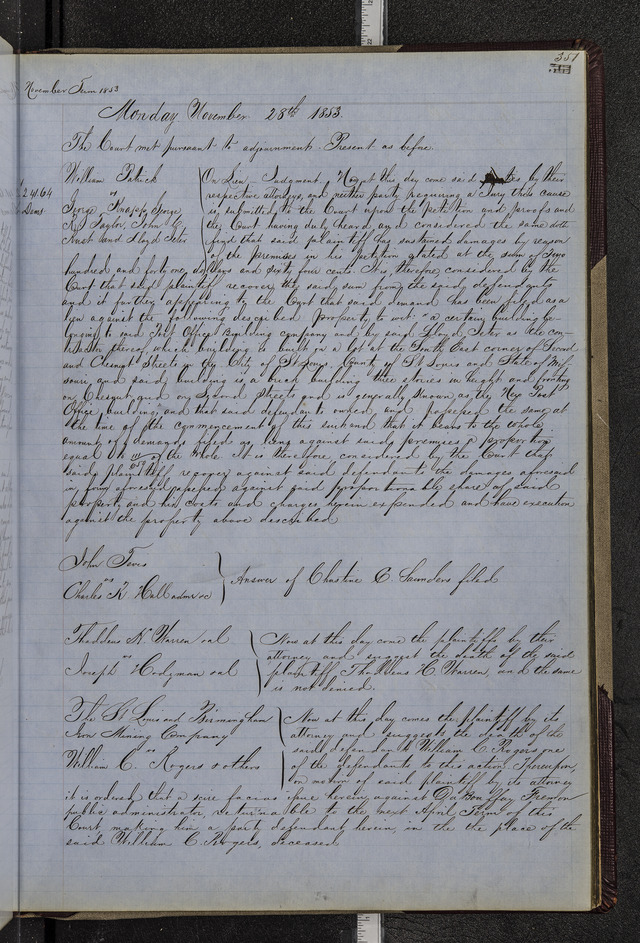 351
November Term 1853
Monday November 28th 1853.
The Court met pursuant to adjournment. Present as before.
William Patrick
vs
George Knapp George
R. Taylor, John C.
and Lloyd Seter
241.64
Dams
On Lien Judgment, Now at this day come said by their
respective attorneys, and neither party requiring a Jury this cause
is submitted to the Court upon the petition and proofs and
the Court having duly heard and considered the same doth
find that said plaintiff has sustained damages by reason
of the premises in his petition stated at the sum of Two
hundred and forty one dollars and sixty four cents. It is therefore considered by the
Court that said plaintiff recover the said sum from the said defendants
and it further appearing to the Court that said demand has been filed as a
lien against the following described property to wit: a certain building be-
longing to said Post Office Building company and by said Lloyd Seter as the con-
thereof, which building is built on a lot at the South East corner of Second
and Chesnut Streets in the City of St Louis, County of St Louis and State of Mis
souri and said building is a brick building three stories in height and fronting
on Chesnut and on Second Streets and is generally known as the New Post
Office building, and that said defendants owned and possessed the same at
the time of the commencement of this suit and that it bears to the whole
amount of demands filed as liens against said premises a proportion
equal to of the whole. It is therefore considered by the Court that
said plaintiff recover against said defendants the damages aforesaid
in form aforesaid against said proportionable share of said
property and his costs and charges herein expended and have execution
against the property above described
John Tevis
vs
Charles K. Hall admr &c
Answer of Chastine C. Saunders filed
Thaddeus H. Warren et al
Joseph Hodgman et al
Now at this day come the plaintiffs by their
attorney and suggest the death of the said
plaintiff, Thaddeus H. Warren, and the same
is not denied.
The St Louis and Birmingham
Iron Mining Company
vs
William C. Rogers & others
Now at this day comes the plaintiff by its
attorney and suggests the death of the
said defendant William C. Rogers one
of the defendants to this action. Thereupon,
on motion of said plaintiff by its attorney
it is ordered that a scire facias issue herein against
public administrator, returnable to the next April Term of this
Court making him a party defendant herein, in the the place of the
said William C. Rogers, deceased